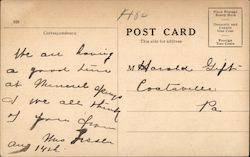 Correspondence
POST CARD
This side for address
Place Postage
Stamp Here
Domestic
One Cent
Foreign
Two Cents
We are having
a good time
at Mineral Springs
we all think
of you from
Mrs
Aug 14th
M Harold Gift
Coatsville
Pa